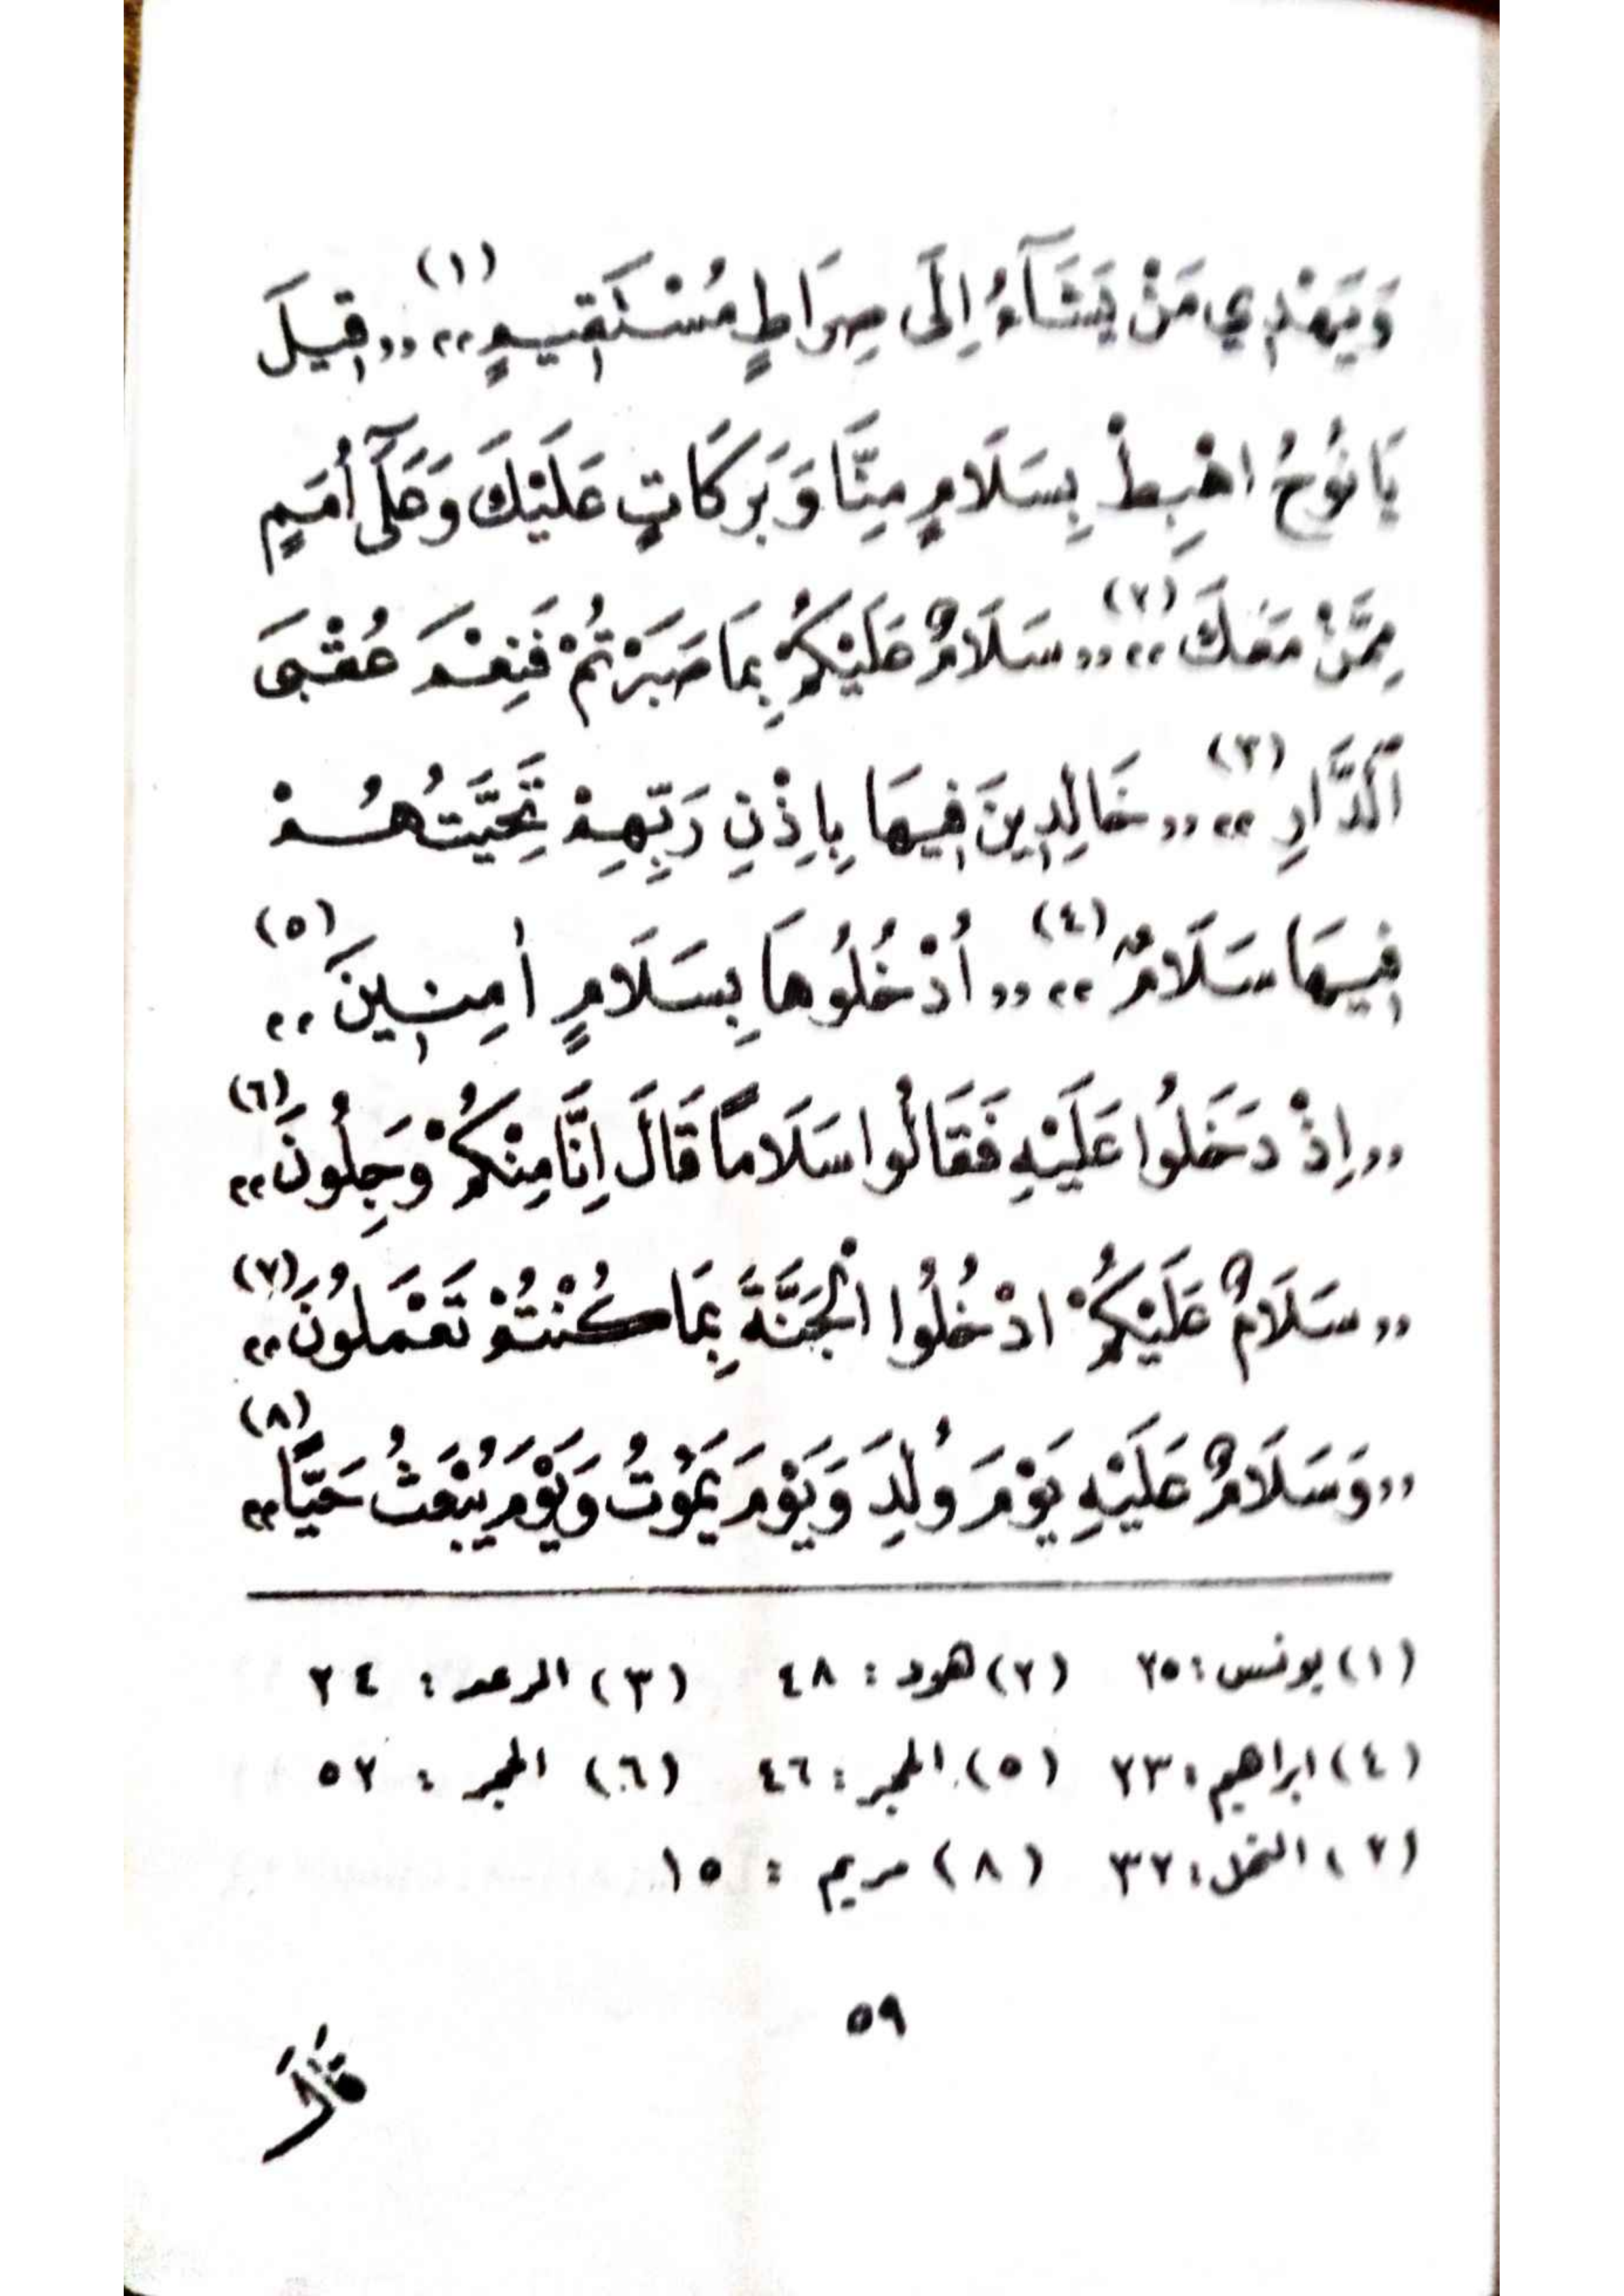 وَيَهْدِي مَنْ يَشَآءُ اِلَى صِرَاطٍ مُسْتَقِيمٍ،، (١) ,,قِيلَ
يَا نُوحُ اهْبِطْ بِسَلَامٍ مِنَّا وَبَرَكَاتٍ عَلَيْكَ وَعَلَىٓ أُمَمٍ
مِمَّنْ مَعَكَ،، (٢) ,,سَلَامٌ عَلَيْكُمْ بِمَا صَبَرْتُمْ فَنِعْمَ عُقْبَى
ٱلدَّارِ،، (٣) ,,خَالِدِينَ فِيهَا بِاِذْنِ رَبِّهِمْ تَحِيَّتُهُمْ
فِيهَا سَلَامٌ،، (٤) ,,اُدْخُلُوهَا بِسَلَامٍ اٰمِنِينَ،، (٥)
,,اِذْ دَخَلُوا عَلَيْهِ فَقَالُوا سَلَاماً قَالَ اِنَّا مِنْكُمْ وَجِلُونَ،، (٦)
,,سَلَامٌ عَلَيْكُمْ ادْخُلُوا الْجَنَّةَ بِمَا كُنْتُمْ تَعْمَلُونَ،، (٧)
,,وَسَلَامٌ عَلَيْهِ يَوْمَ وُلِدَ وَيَوْمَ يَمُوتُ وَيَوْمَ يُبْعَثُ حَيًّا،، (٨)
(١) يونس : ٢٥ (٢) هود : ٤٨ (٣) الرعد : ٢٤
(٤) ابراهيم : ٢٣ (٥) الحجر : ٤٦ (٦) الحجر : ٥٢
(٧) النحل : ٣٢ (٨) مريم : ١٥
٥٩
قَالَ